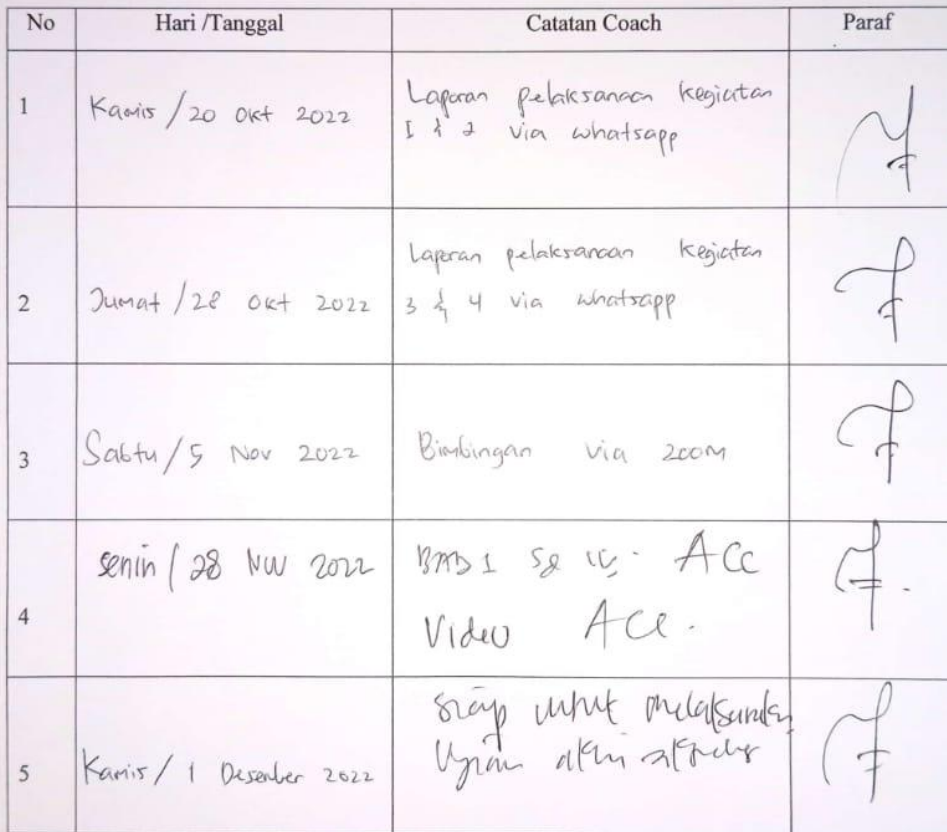 No Hari /Tanggal Catatan Coach Paraf
1 Kamis / 20 Okt 2022 Laporan pelaksanaan kegiatan
I & 2 via whatsapp
2 Jumat / 28 Okt 2022 Laporan pelaksanaan kegiatan
3 & 4 via whatsapp
3 Sabtu / 5 Nov 2022 Bimbingan via ZOOM
4 senin / 28 Nov 2022 BAB I Acc
Video Acc.
5 Kamis / 1 Desember 2022 Siap untuk melaksanakan
Ujian